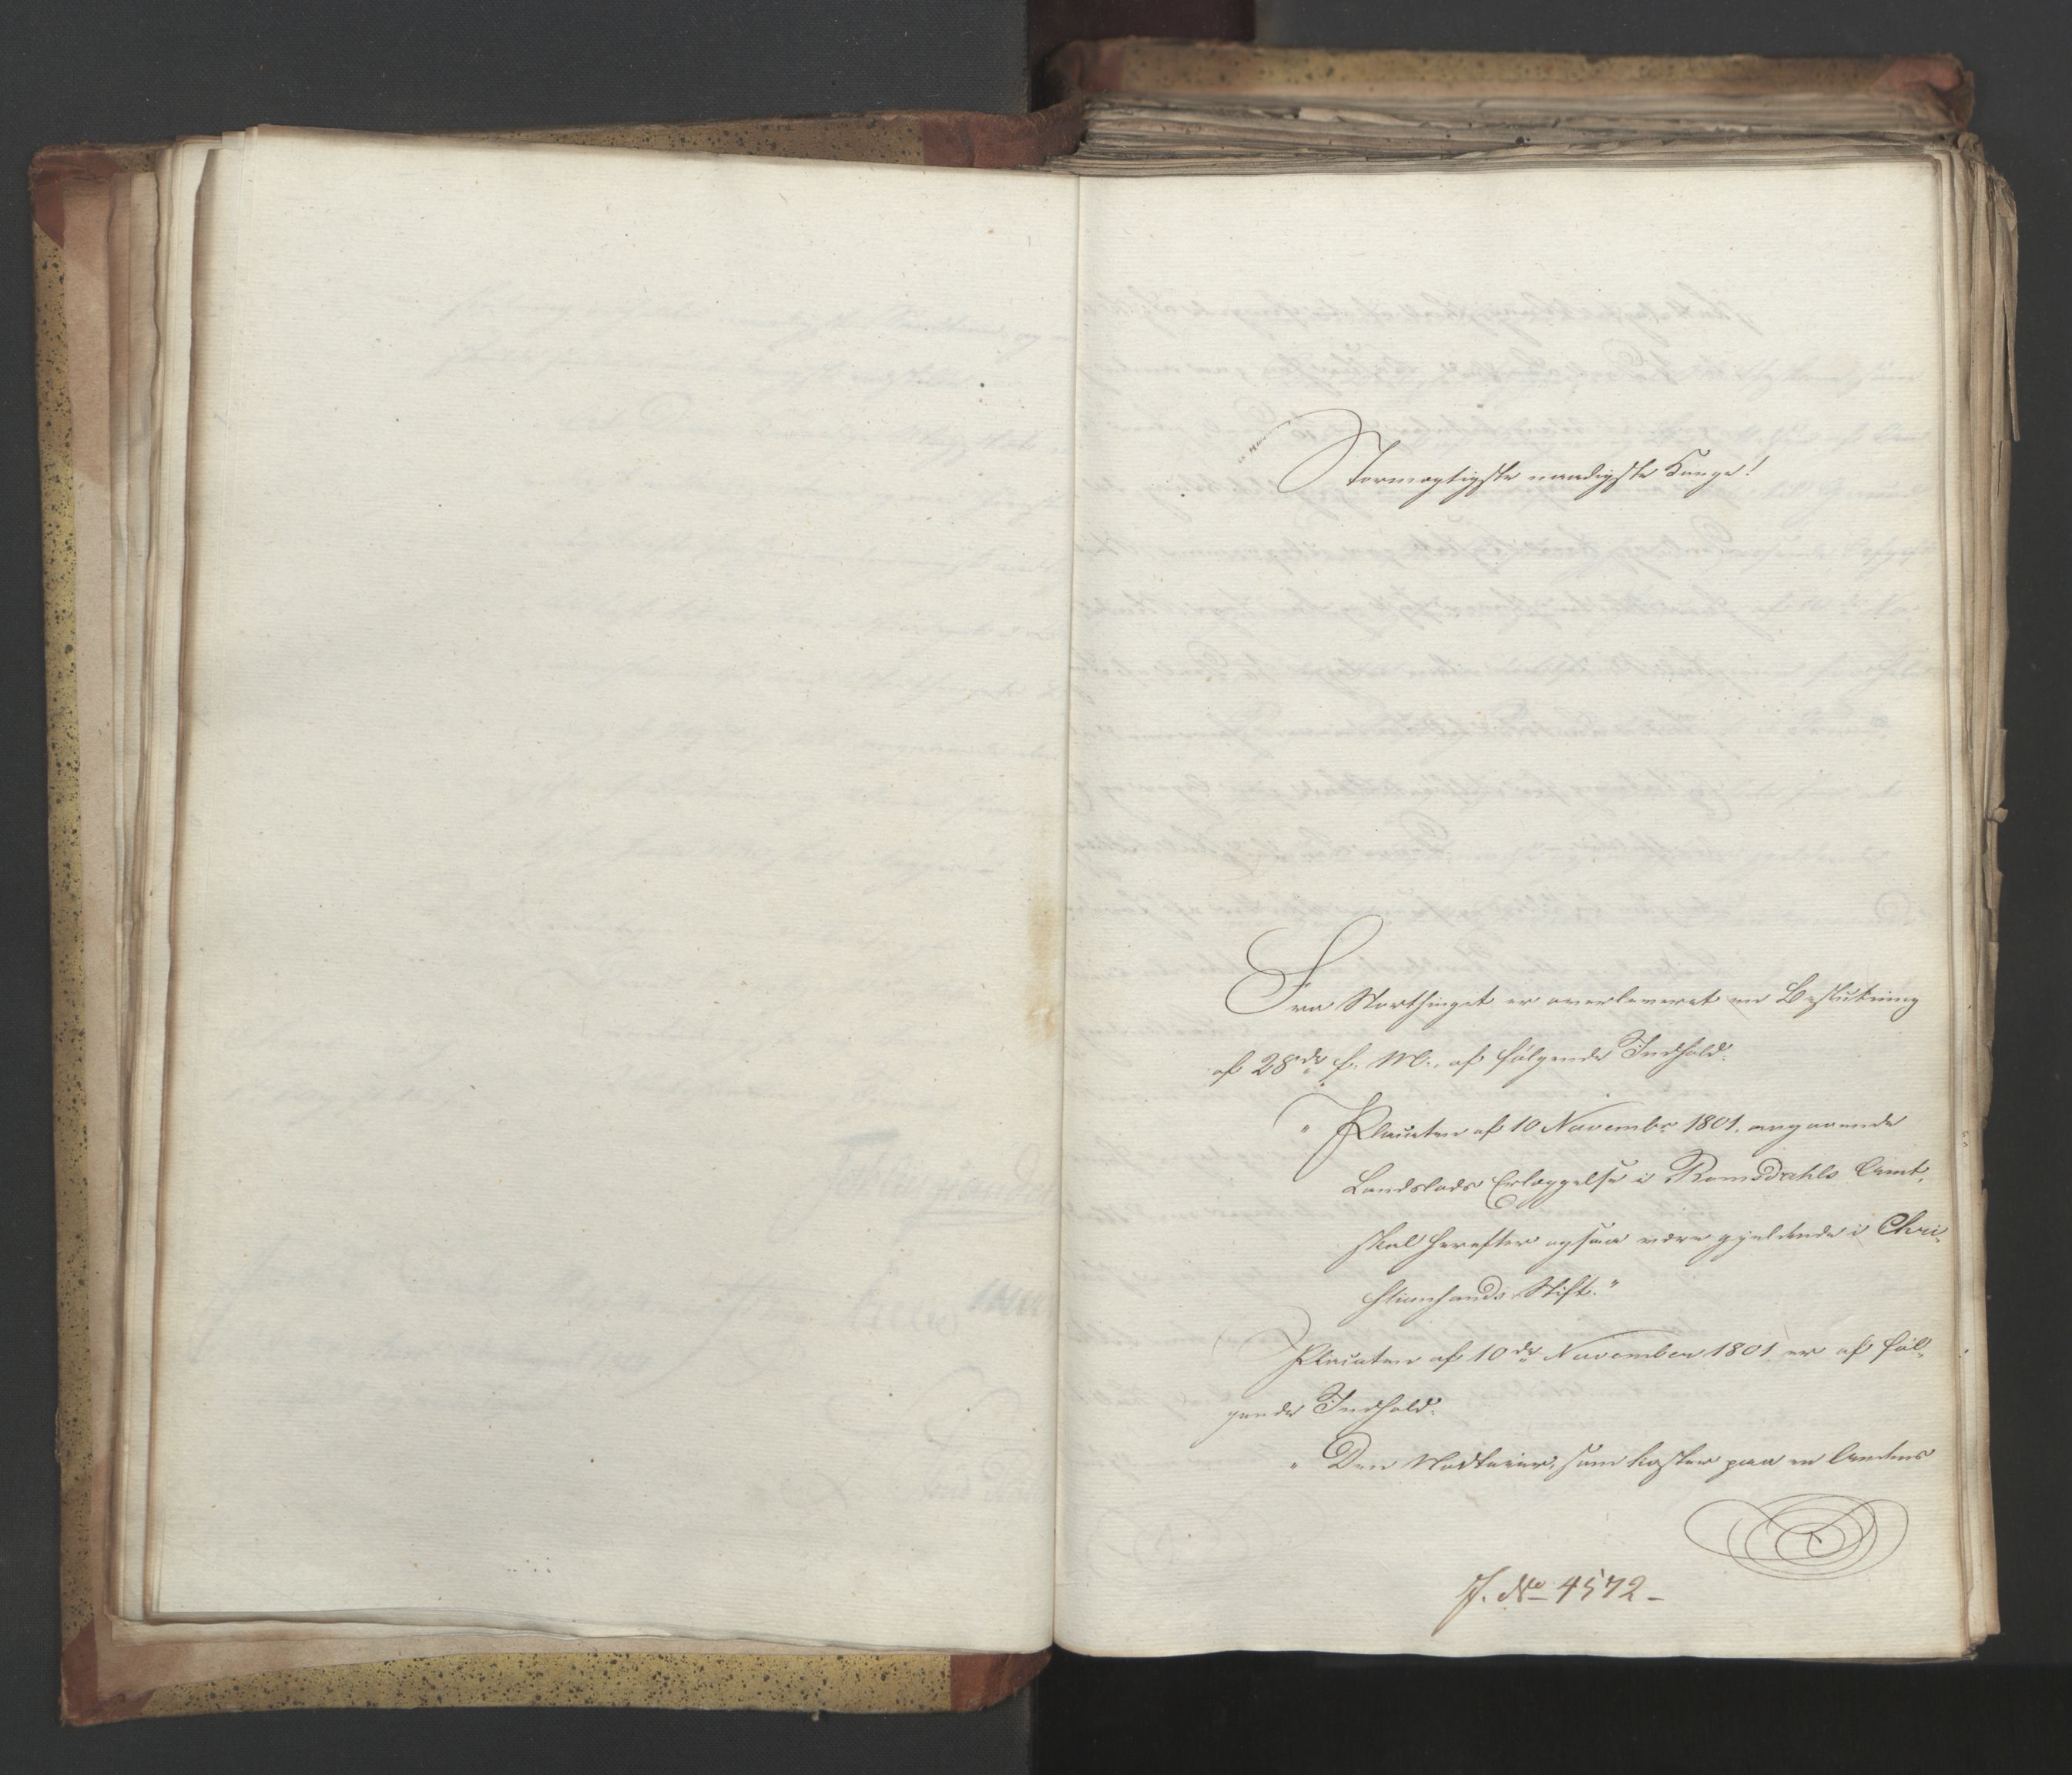 Stormægtigste naadigste Konge!
Fra Storthinget er overleveret en Beslutning
af 28de f. M., af følgende Indhold:
"Placaten af 10 Novembr 1801. angaaende
Landslods Erlæggelse i Romsdahls Amt,
skal herefter ogsaa være gjeldende i Chri-
stiansands Stift."
Placaten af 10de November 1801 er af føl-
gende Indhold:
"Den Nodteier, som kaster paa en Andens
J. No 4572-